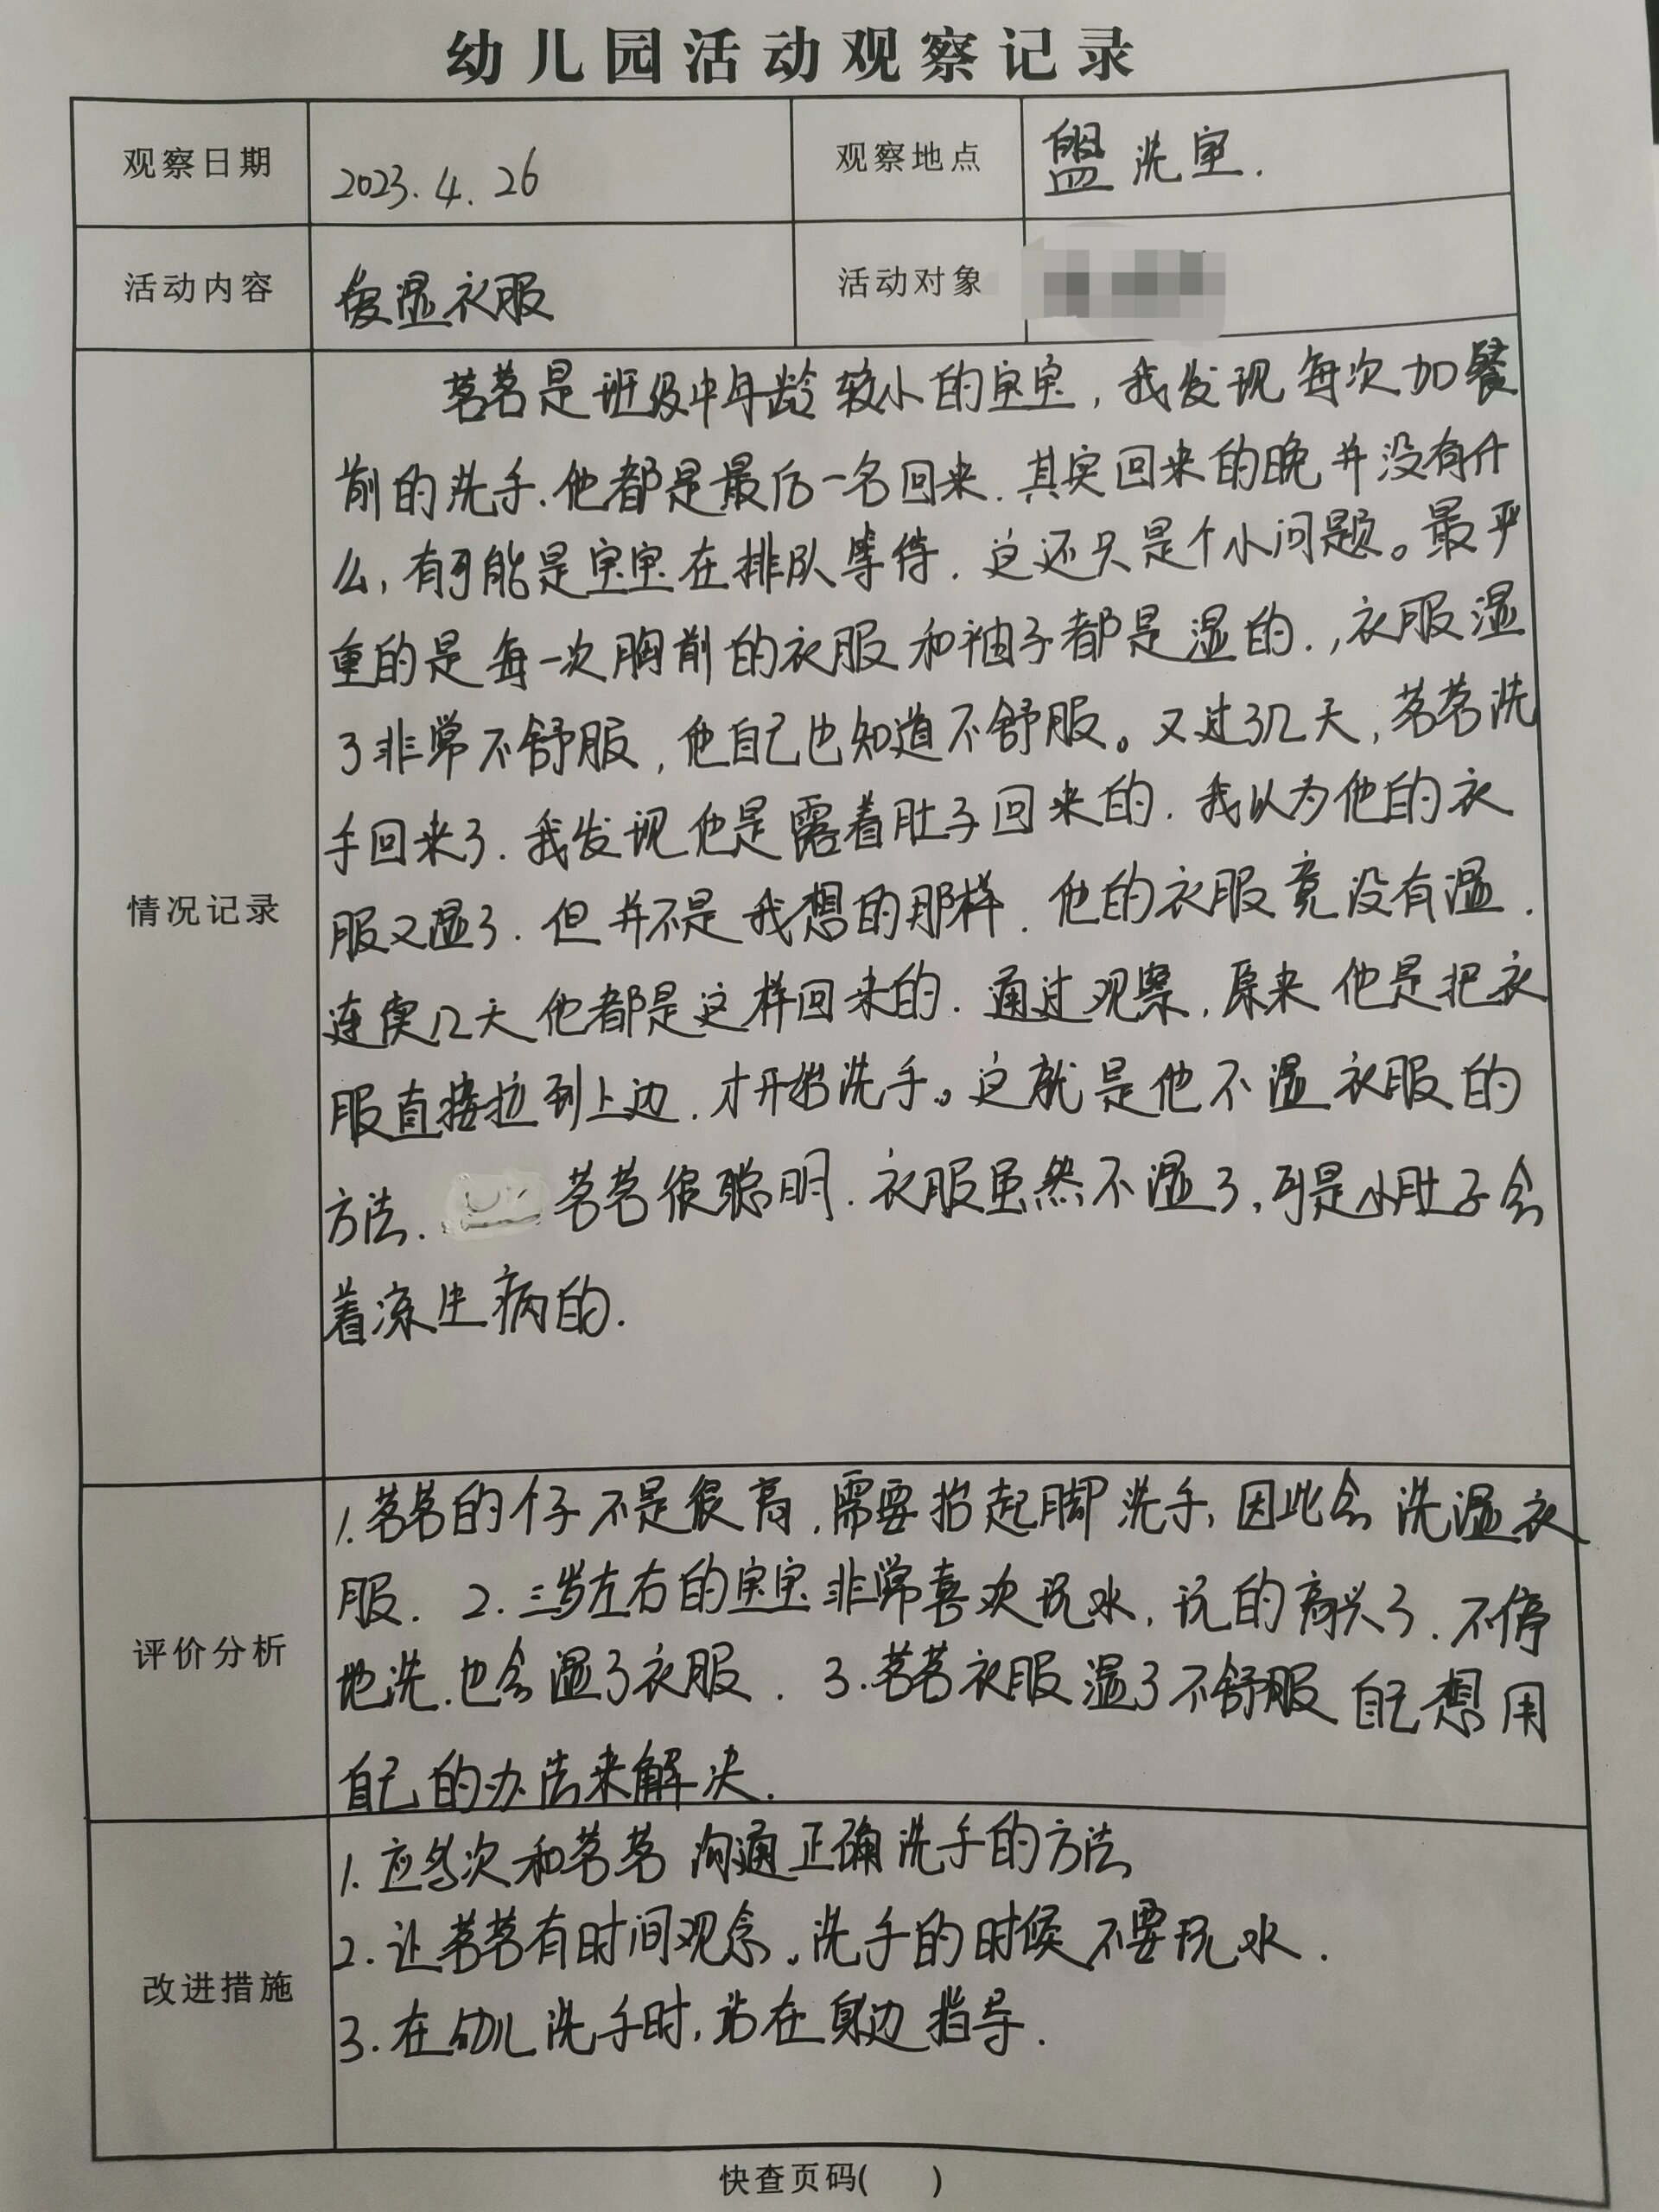 幼儿园活动观察记录
观察日期 2023.4.26 观察地点 盥洗室.
活动内容 爱湿衣服 活动对象
情况记录
茗茗是班级中年龄较小的宝宝,我发现每次加餐
前的洗手.他都是最后一名回来.其实回来的晚并没有什
么,有可能是宝宝在排队等待.这还只是个小问题。最严
重的是每一次胸前的衣服和袖子都是湿的.,衣服湿
了非常不舒服,他自己也知道不舒服。又过了几天,茗茗洗
手回来了.我发现他是露着肚子回来的.我以为他的衣
服又湿了.但并不是我想的那样.他的衣服竟没有湿.
连续几天他都是这样回来的.通过观察,原来他是把衣
服直接拉到上边.才开始洗手。这就是他不湿衣服的
方法.茗茗很聪明.衣服虽然不湿了,可是小肚子会
着凉生病的.
评价分析
1.茗茗的个子不是很高,需要抬起脚洗手,因此会洗湿衣
服. 2.三岁左右的宝宝非常喜欢玩水,玩的高兴了.不停
地洗.也会湿了衣服. 3.茗茗衣服湿了不舒服自己想用
自己的办法来解决.
改进措施
1.应多次和茗茗沟通正确洗手的方法
2.让茗茗有时间观念。洗手的时候不要玩水.
3.在幼儿洗手时,站在身边指导.
快查页码( )